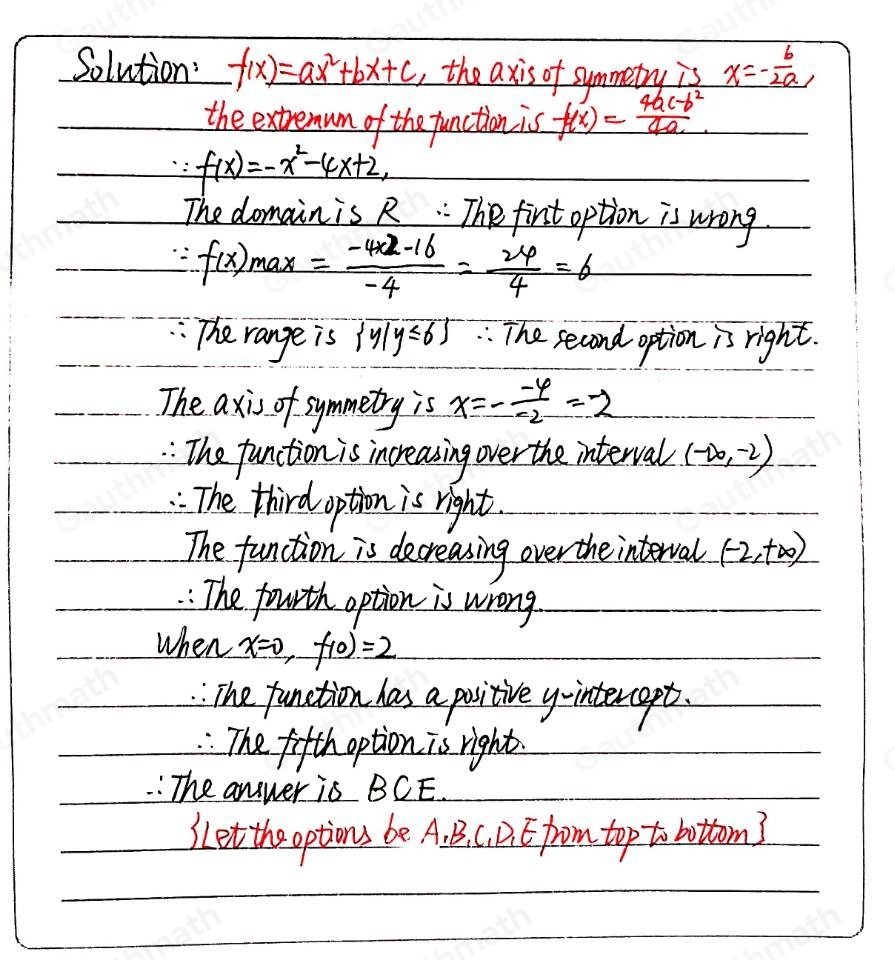 Solution: f(x)=ax²+bx+c, the axis of symmetry is x=-b/2a,
the extremum of the function is f(x)=4ac-b²/4a.
∵ f(x)=-x²-4x+2,
The domain is R ∴ The first option is wrong.
∵ f(x)max = -4×2-16/-4 = 24/4 = 6
∴ The range is {y|y≤6} ∴ The second option is right.
The axis of symmetry is x=- -4/-2 =-2
∴ The function is increasing over the interval (-∞,-2)
∴ The third option is right.
The function is decreasing over the interval (-2,+∞)
∴ The fourth option is wrong.
When x=0, f(0)=2
∴ The function has a positive y-intercept.
∴ The fifth option is right.
∴ The answer is BCE.
{Let the options be A,B,C,D,E from top to bottom}